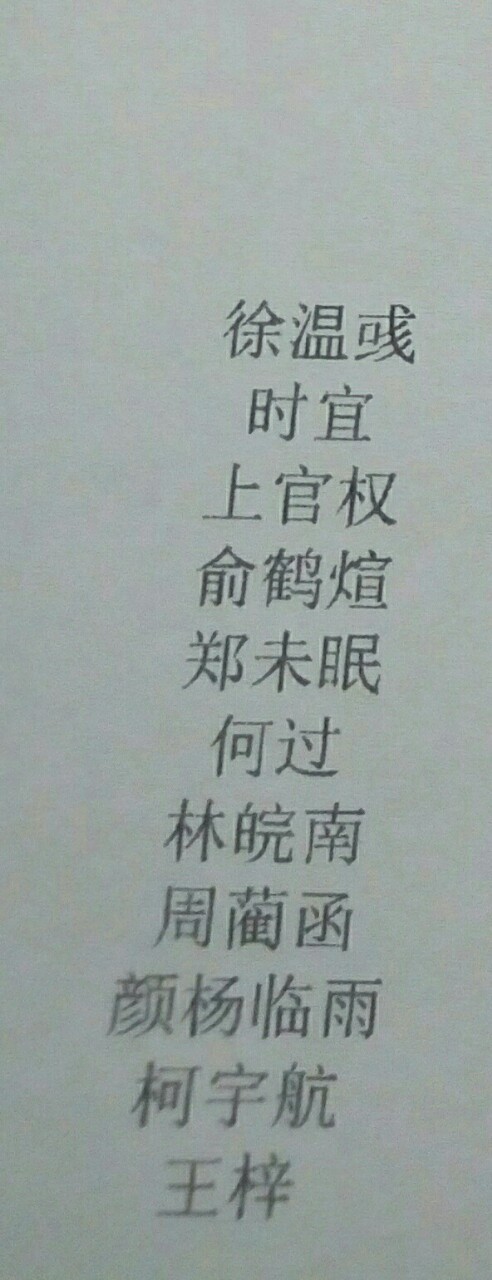 徐温彧
时宜
上官权
俞鹤煊
郑未眠
何过
林皖南
周蔺函
颜杨临雨
柯宇航
王梓